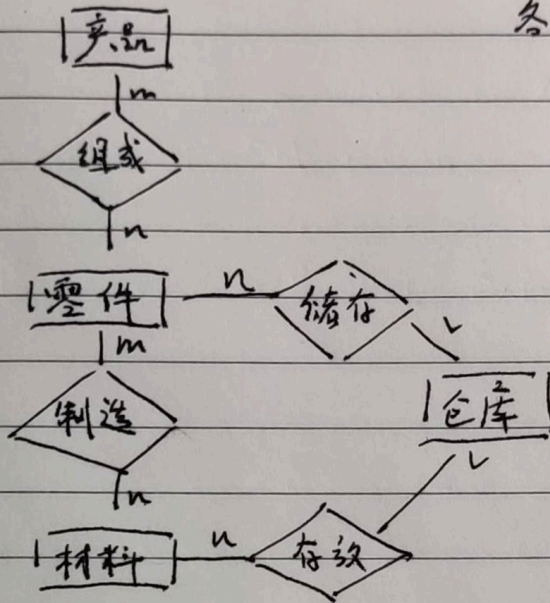 各
产品
m
组成
n
零件
n
储存
m
制造
仓库
n
材料
n
存放